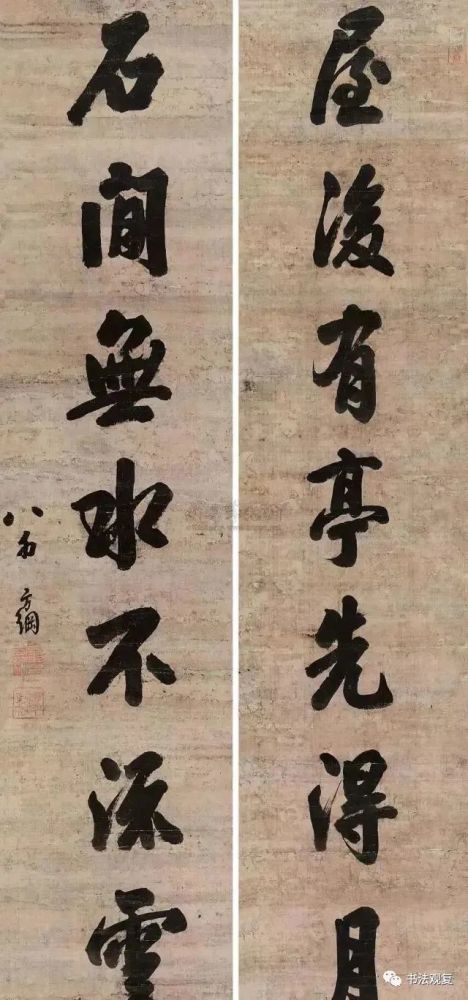 屋後有亭先得月
石間無水不流雲
方綱
书法观复